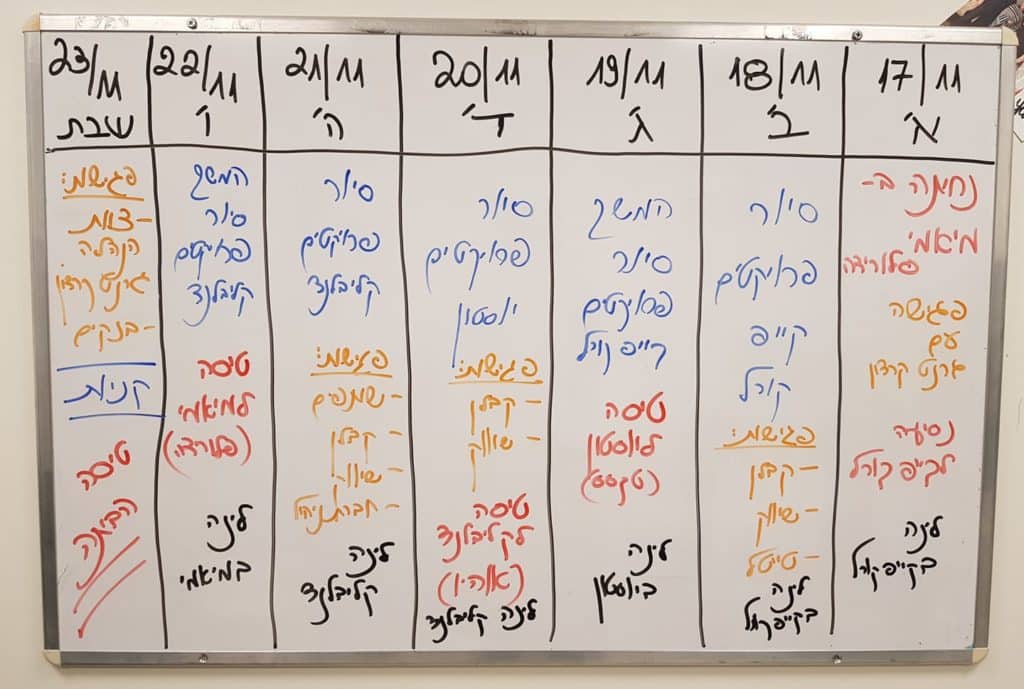 17/11
א'
נחיתה ב-
מיאמי
פלורידה
פגישה
עם
גרנט קרדון
נסיעה
לקייפ קורל
לינה
בקייפ קורל
18/11
ב'
סיור
פרויקטים
קייפ
קורל
פגישות:
- קבלן
- שיווק
- טייטל
לינה
בקייפ קורל
19/11
ג'
המשך
סיור
פרויקטים
קייפ קורל
טיסה
ליוסטון
(טקסס)
לינה
ביוסטון
20/11
ד'
סיור
פרויקטים
יוסטון
פגישות:
- קבלן
- שיווק
טיסה
לקליבלנד
(אוהיו)
לינה קליבלנד
21/11
ה'
סיור
פרויקטים
קליבלנד
פגישות:
- שותפים
- קבלן
- שיווק
- חברת ניהול
לינה
קליבלנד
22/11
ו'
המשך
סיור
פרויקטים
קליבלנד
טיסה
למיאמי
(פלורידה)
לינה
במיאמי
23/11
שבת
פגישות:
- צוות
הנהלה
גרנט קרדון
- בנקים
קניות
טיסה
הביתה